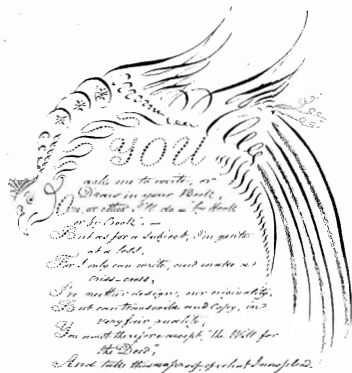 YOU
asks me to write, or
Draw in your Book,
One, or other I'll do — by Hook
or by Crook, —
But as for a Subject, I'm quite
at a loss,
For I only can write, and make a
criss-cross,
I've neither design, nor originality,
But can transcribe and Copy, in a
very fair quality,
You must therefore accept, "the Will for
the Deed",
And take this as a proof of what I now plead.